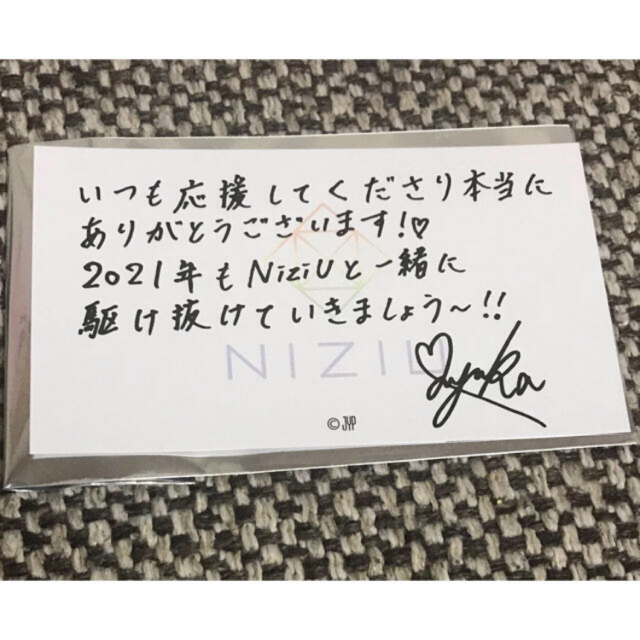 いつも応援してくださり本当に
ありがとうございます!♡
2021年もNiziUと一緒に
駆け抜けていきましょう〜!!
NIZIU
♡Ayaka
© JYP